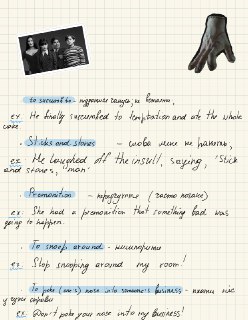 to succumb to -
ex. He finally succumbed to temptation and ate the whole
cake
. Sticks and stones - слова мене не ранять,
ex. He laughed off the insult, saying, "Stick
and stones, man"
. Premonition - передчуття (часто погане)
ex. She had a premonition that something bad was
going to happen.
. To snoop around - нишпорити
ex. Stop snooping around my room!
. To poke (one's) nose into someone's business - пхати ніс
у чужі справи
ex. Don't poke your nose into my business!